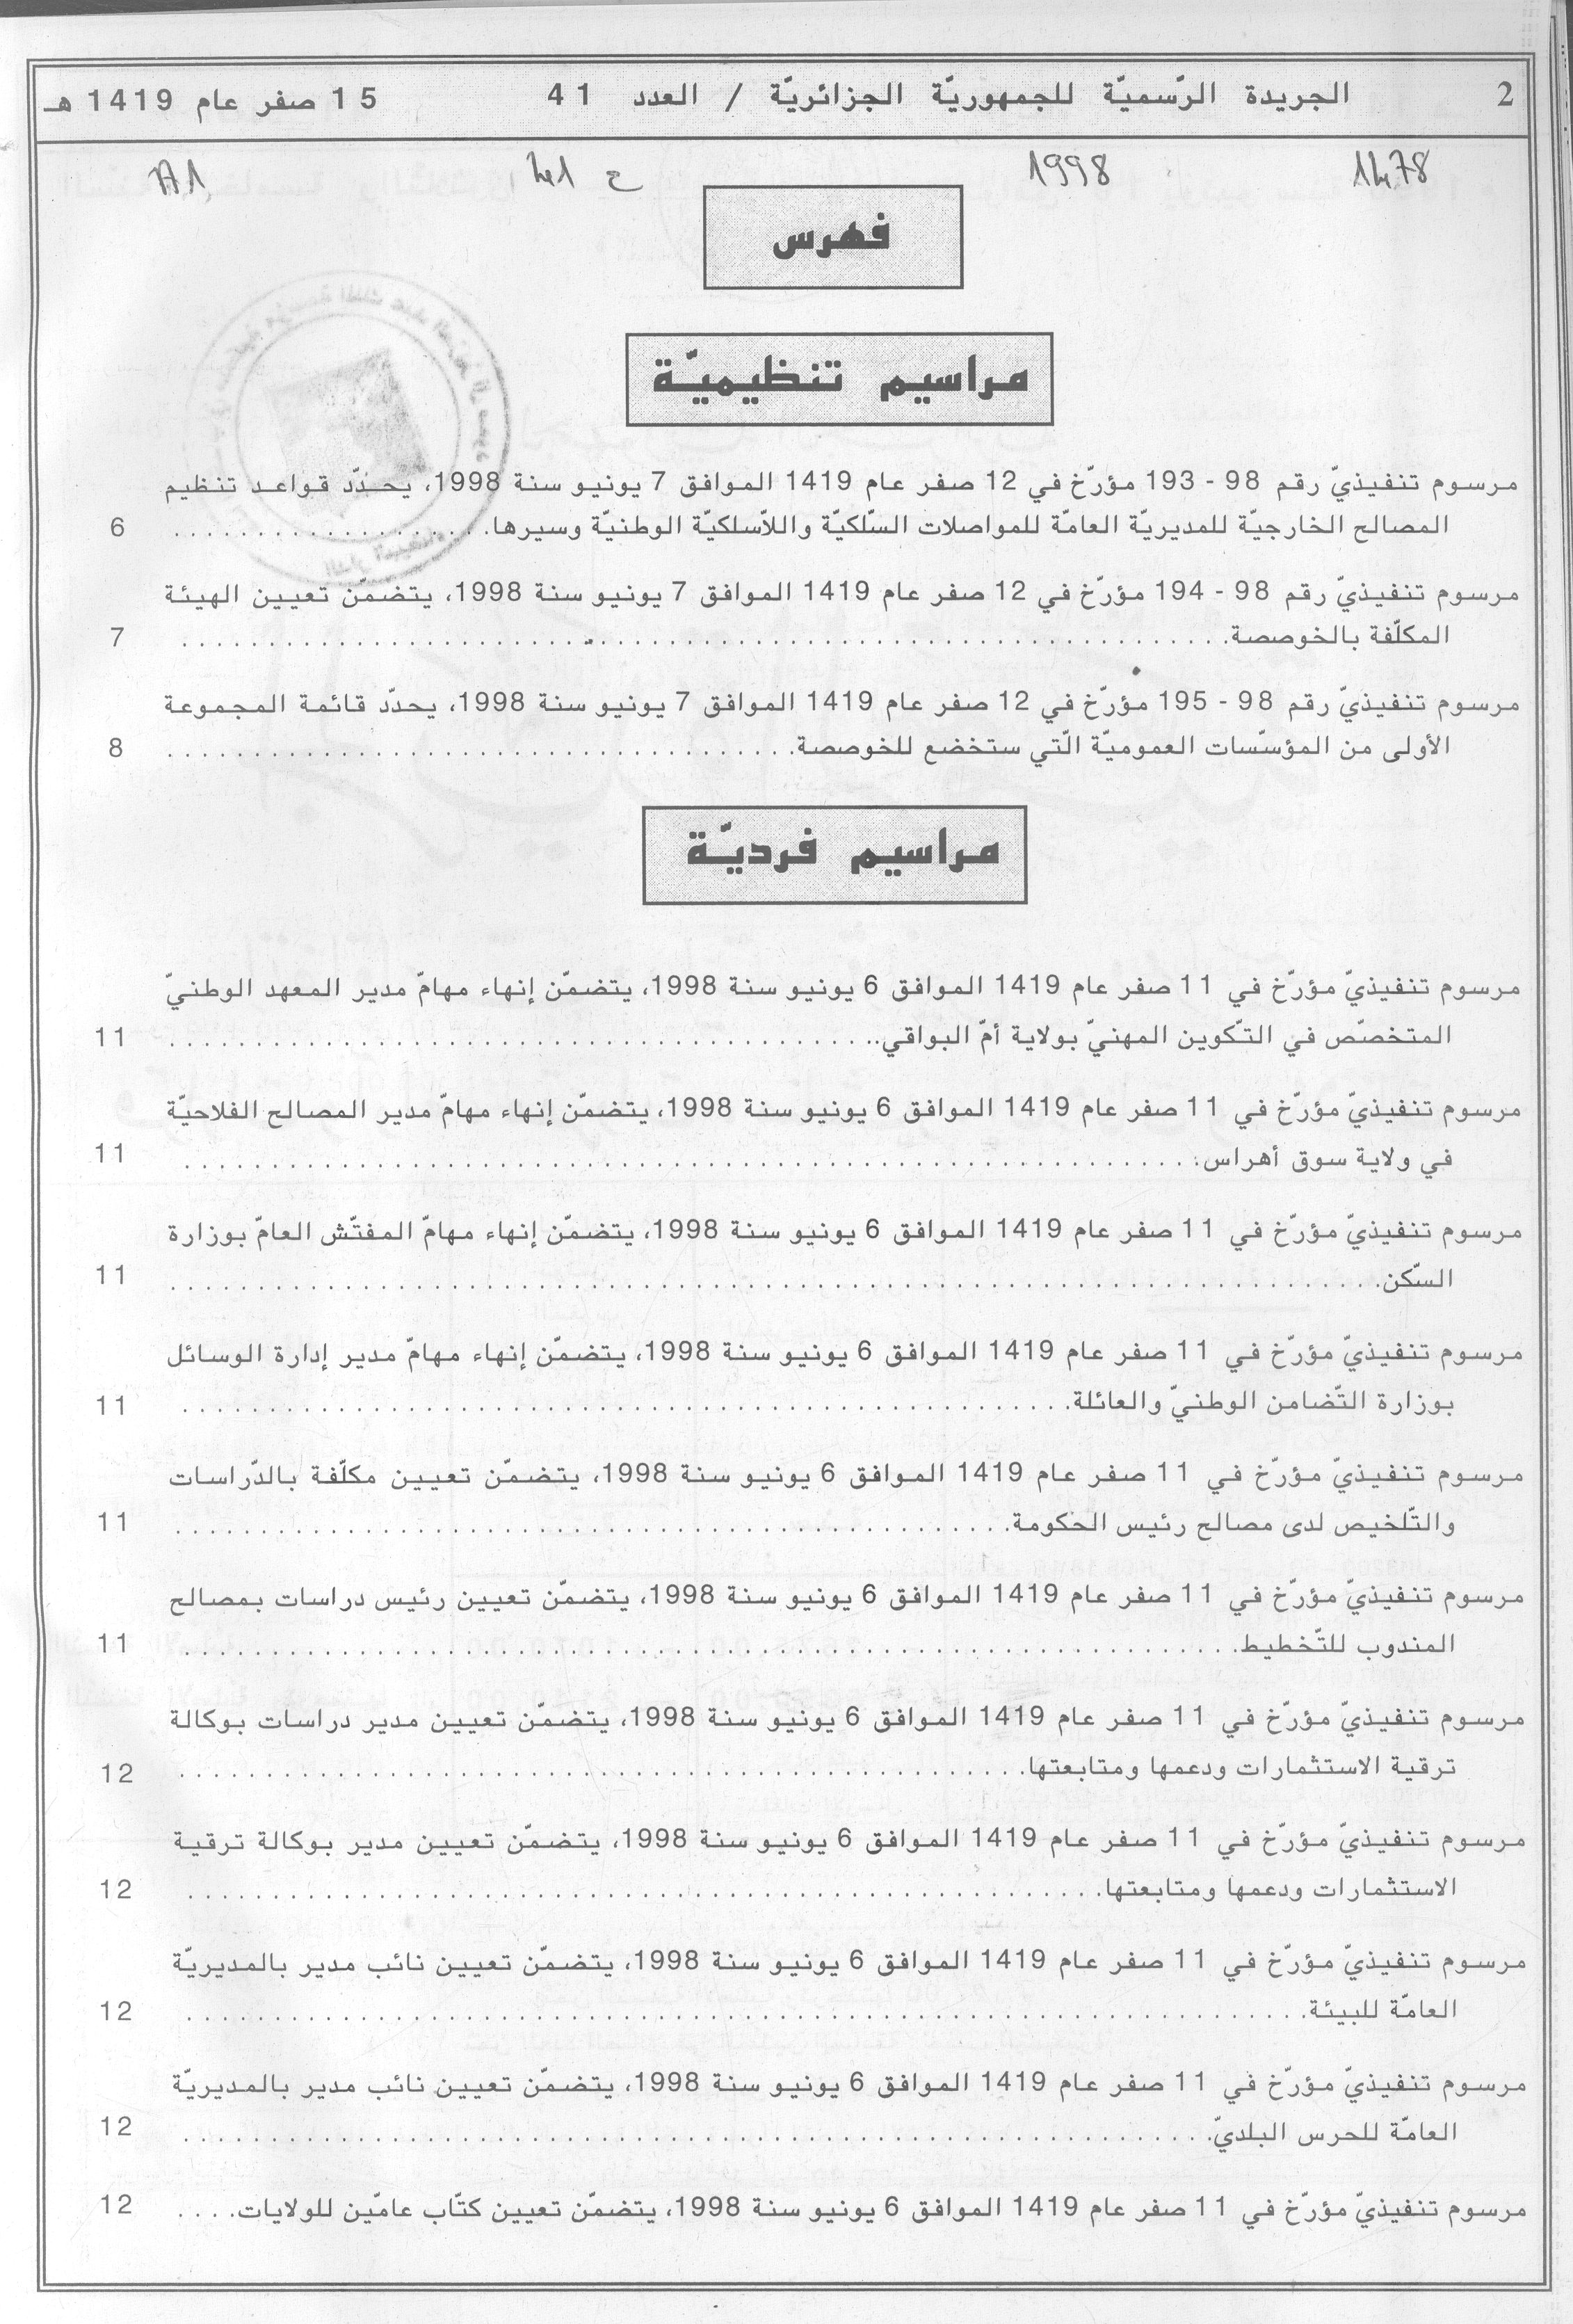 2 الجريدة الرّسميّة للجمهوريّة الجزائريّة / العدد 41 15 صفر عام 1419 هـ
1478 1998 ع 41
فهرس
مراسيم تنظيميّة
مرسوم تنفيذيّ رقم 98 - 193 مؤرّخ في 12 صفر عام 1419 الموافق 7 يونيو سنة 1998، يحدّد قواعد تنظيم
المصالح الخارجيّة للمديريّة العامّة للمواصلات السّلكيّة واللاّسلكيّة الوطنيّة وسيرها. . . . . . . . . . . . . . . . . . . . 6
مرسوم تنفيذيّ رقم 98 - 194 مؤرّخ في 12 صفر عام 1419 الموافق 7 يونيو سنة 1998، يتضمّن تعيين الهيئة
المكلّفة بالخوصصة. . . . . . . . . . . . . . . . . . . . 7
مرسوم تنفيذيّ رقم 98 - 195 مؤرّخ في 12 صفر عام 1419 الموافق 7 يونيو سنة 1998، يحدّد قائمة المجموعة
الأولى من المؤسّسات العموميّة الّتي ستخضع للخوصصة. . . . . . . . . . . . . . . . . . . . 8
مراسيم فرديّة
مرسوم تنفيذيّ مؤرّخ في 11 صفر عام 1419 الموافق 6 يونيو سنة 1998، يتضمّن إنهاء مهامّ مدير المعهد الوطنيّ
المتخصّص في التّكوين المهنيّ بولاية أمّ البواقي. . . . . . . . . . . . . . . . . . . . 11
مرسوم تنفيذيّ مؤرّخ في 11 صفر عام 1419 الموافق 6 يونيو سنة 1998، يتضمّن إنهاء مهامّ مدير المصالح الفلاحيّة
في ولاية سوق أهراس. . . . . . . . . . . . . . . . . . . . 11
مرسوم تنفيذيّ مؤرّخ في 11 صفر عام 1419 الموافق 6 يونيو سنة 1998، يتضمّن إنهاء مهامّ المفتّش العامّ بوزارة
السّكن. . . . . . . . . . . . . . . . . . . . 11
مرسوم تنفيذيّ مؤرّخ في 11 صفر عام 1419 الموافق 6 يونيو سنة 1998، يتضمّن إنهاء مهامّ مدير إدارة الوسائل
بوزارة التّضامن الوطنيّ والعائلة. . . . . . . . . . . . . . . . . . . . 11
مرسوم تنفيذيّ مؤرّخ في 11 صفر عام 1419 الموافق 6 يونيو سنة 1998، يتضمّن تعيين مكلّفة بالدّراسات
والتّلخيص لدى مصالح رئيس الحكومة. . . . . . . . . . . . . . . . . . . . 11
مرسوم تنفيذيّ مؤرّخ في 11 صفر عام 1419 الموافق 6 يونيو سنة 1998، يتضمّن تعيين رئيس دراسات بمصالح
المندوب للتّخطيط. . . . . . . . . . . . . . . . . . . . 11
مرسوم تنفيذيّ مؤرّخ في 11 صفر عام 1419 الموافق 6 يونيو سنة 1998، يتضمّن تعيين مدير دراسات بوكالة
ترقية الاستثمارات ودعمها ومتابعتها. . . . . . . . . . . . . . . . . . . . 12
مرسوم تنفيذيّ مؤرّخ في 11 صفر عام 1419 الموافق 6 يونيو سنة 1998، يتضمّن تعيين مدير بوكالة ترقية
الاستثمارات ودعمها ومتابعتها. . . . . . . . . . . . . . . . . . . . 12
مرسوم تنفيذيّ مؤرّخ في 11 صفر عام 1419 الموافق 6 يونيو سنة 1998، يتضمّن تعيين نائب مدير بالمديريّة
العامّة للبيئة. . . . . . . . . . . . . . . . . . . . 12
مرسوم تنفيذيّ مؤرّخ في 11 صفر عام 1419 الموافق 6 يونيو سنة 1998، يتضمّن تعيين نائب مدير بالمديريّة
العامّة للحرس البلديّ. . . . . . . . . . . . . . . . . . . . 12
مرسوم تنفيذيّ مؤرّخ في 11 صفر عام 1419 الموافق 6 يونيو سنة 1998، يتضمّن تعيين كتّاب عامّين للولايات. . . . 12